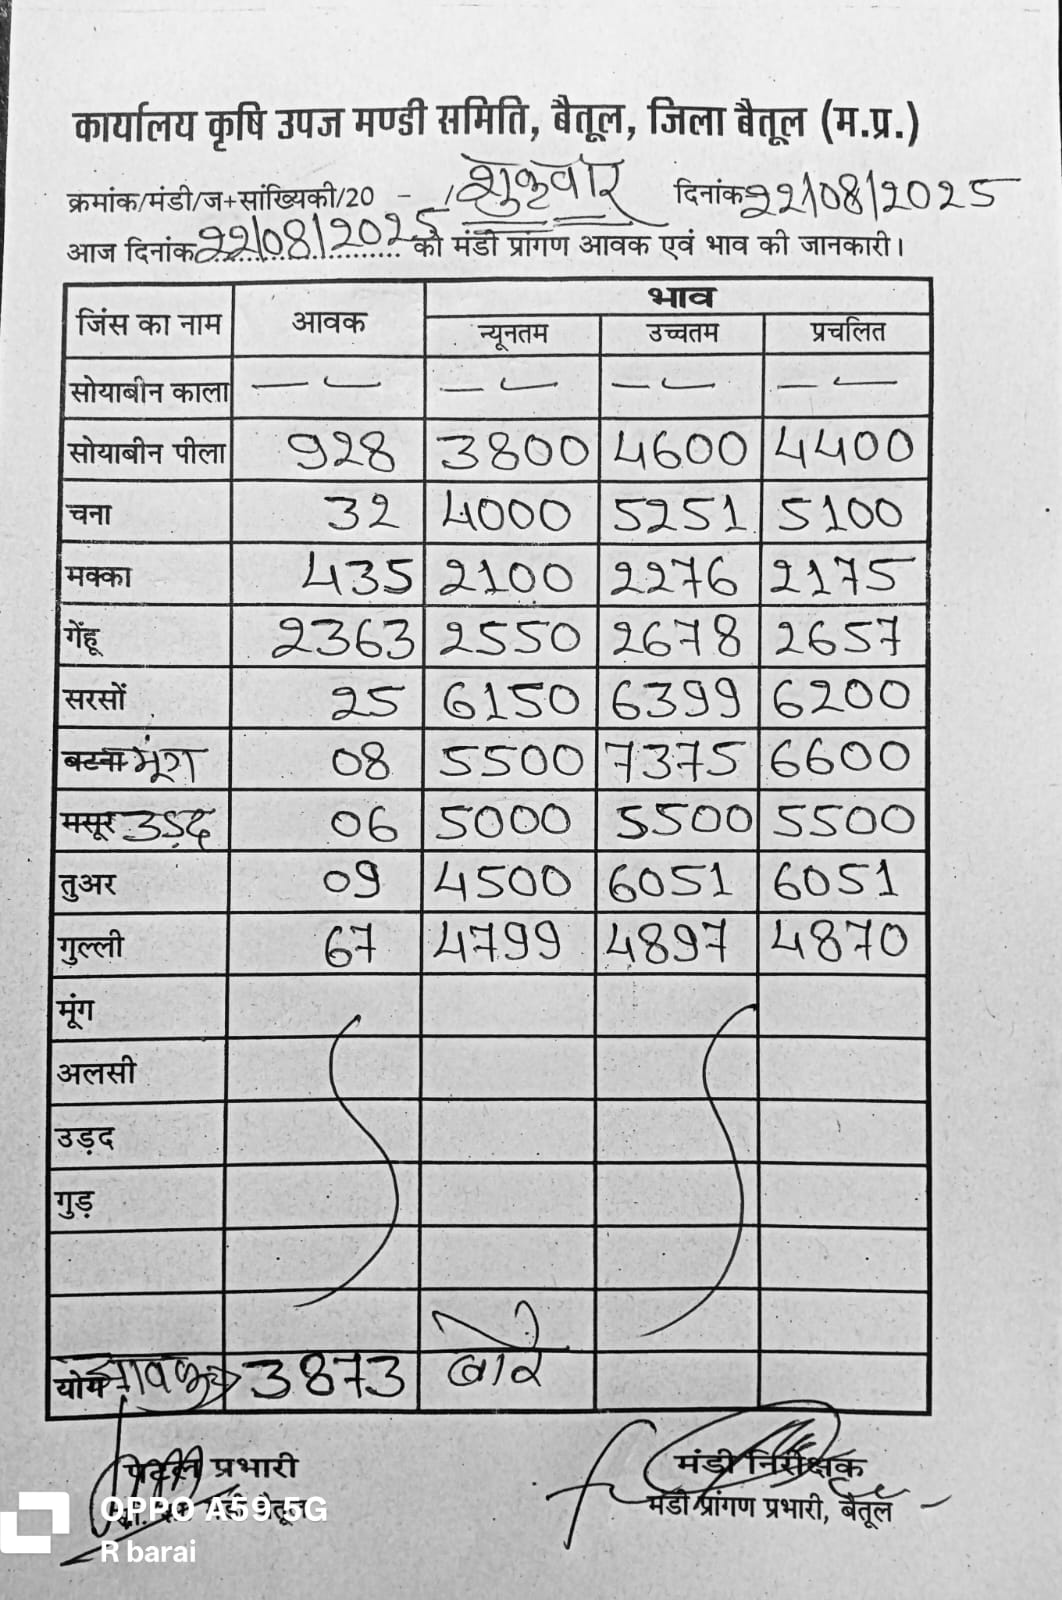 कार्यालय कृषि उपज मण्डी समिति, बैतूल, जिला बैतूल (म.प्र.)
क्रमांक/मंडी/ज+सांख्यिकी/20 - / शुक्रवार दिनांक 22/08/2025
आज दिनांक 22/08/2025 की मंडी प्रांगण आवक एवं भाव की जानकारी।
जिंस का नाम आवक भाव
न्यूनतम उच्चतम प्रचलित
सोयाबीन काला — — — — — — — —
सोयाबीन पीला 928 3800 4600 4400
चना 32 4000 5251 5100
मक्का 435 2100 2276 2175
गेंहू 2363 2550 2678 2657
सरसों 25 6150 6399 6200
बटना मूंग 08 5500 7375 6600
मसूर उड़द 06 5000 5500 5500
तुअर 09 4500 6051 6051
गुल्ली 67 4799 4897 4870
मूंग
अलसी
उड़द
गुड़
योग आवक 3873 बोरे
प्रभारी मंडी निरीक्षक
मंडी बैतूल मंडी प्रांगण प्रभारी, बैतूल
OPPO A59 5G
R barai